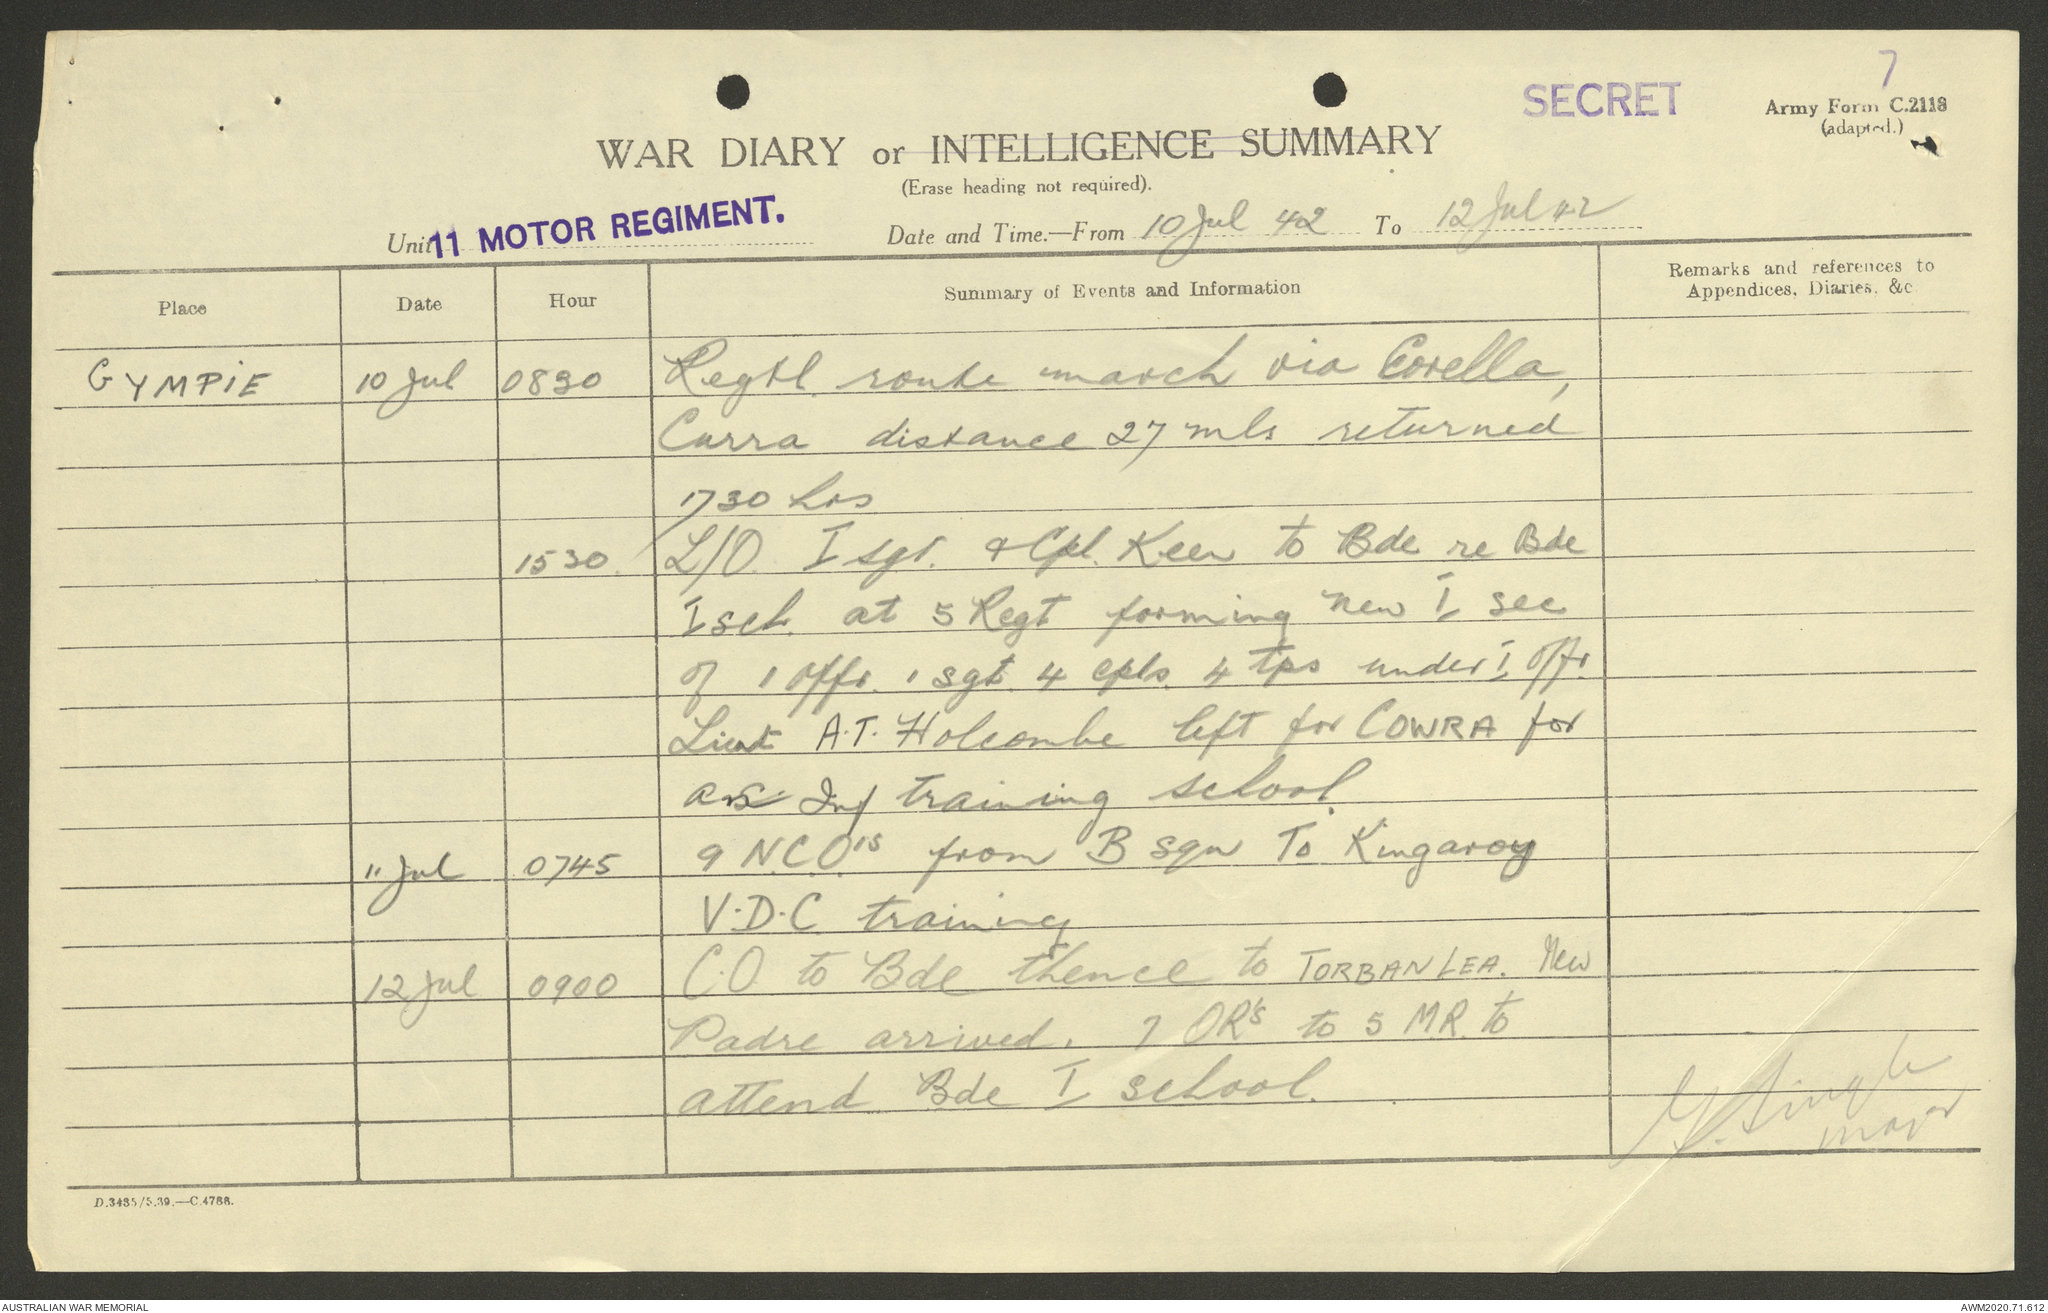 7
SECRET
Army Form C.2118
(adapted.)
WAR DIARY or INTELLIGENCE SUMMARY
(Erase heading not required).
Unit 11 MOTOR REGIMENT.
Date and Time.—From 10 Jul 42 To 12 Jul 42
Place Date Hour Summary of Events and Information Remarks and references to
Appendices, Diaries, &c
GYMPIE 10 Jul 0830 Regtl. route march via Corella,
Curra distance 27 mls returned
1730 hrs
1530 L/O. I sgt. & Cpl. Keen to Bde re Bde
I sch. at 5 Regt forming new I sec
of 1 offr. 1 sgt. 4 cpls. 4 tps under I offr.
Lieut A.T. Holcombe left for COWRA for
Inf training school.
11 Jul 0745 9 N.C.O's from B sqn To Kingaroy
V.D.C training
12 Jul 0900 C.O to Bde thence to TORBANLEA. New
Padre arrived. 7 OR's to 5 M.R. to
attend Bde I school.
major
D.3485/5.39.—C.4788.
AUSTRALIAN WAR MEMORIAL
AWM2020.71.612